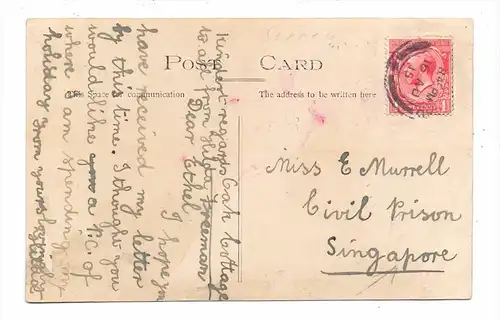 POST CARD
This Space for communication
The address to be written here
Oak Cottage
Dear Ethel
I hope you
have received my letter
by this time. I thought you
would like a p.c. of
where I am spending my
holiday from yours lovingly
Hilda
Kindest regards
to all from Hilda Freeman
Miss E Murrell
Civil Prison
Singapore